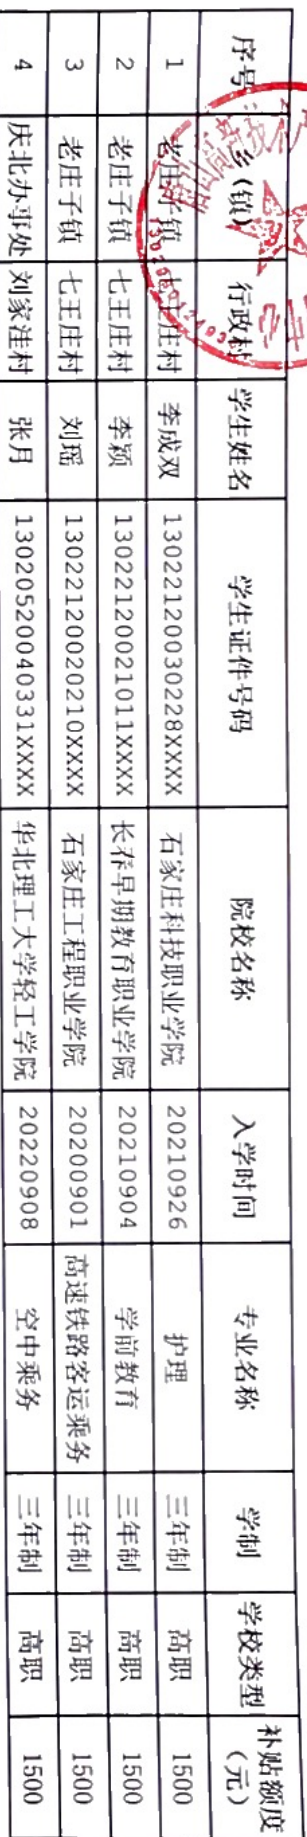 序号 乡（镇） 行政村 学生姓名 学生证件号码 院校名称 入学时间 专业名称 学制 学校类型 补贴额度（元）
1 老庄子镇 七王庄村 李成双 13022120030228XXXX 石家庄科技职业学院 20210926 护理 三年制 高职 1500
2 老庄子镇 七王庄村 李颖 13022120021011XXXX 长春早期教育职业学院 20210904 学前教育 三年制 高职 1500
3 老庄子镇 七王庄村 刘瑶 13022120020210XXXX 石家庄工程职业学院 20200901 高速铁路客运乘务 三年制 高职 1500
4 庆北办事处 刘家洼村 张月 13020520040331XXXX 华北理工大学轻工学院 20220908 空中乘务 三年制 高职 1500